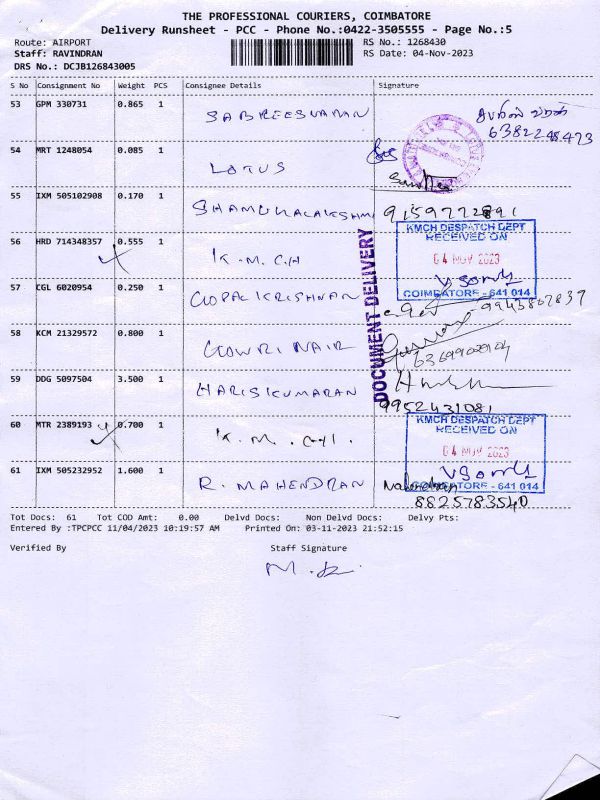 THE PROFESSIONAL COURIERS, COIMBATORE
Delivery Runsheet - PCC - Phone No.:0422-3505555 - Page No.:5
Route: AIRPORT RS No.: 1268430
Staff: RAVINDRAN RS Date: 04-Nov-2023
DRS No.: DCJB126843005
S No Consignment No Weight PCS Consignee Details Signature
53 GPM 330731 0.865 1 SABREESWARAN
6382248473
54 MRT 1248054 0.085 1 LOTUS
55 IXM 505102908 0.170 1 SHAMUKALAKSHMI 9159772891
KMCH DESPATCH DEPT
RECEIVED ON
56 HRD 714348357 0.555 1 K.M.C.H
04 NOV 2023
COIMBATORE - 641 014
57 CGL 6020954 0.250 1 GOPALKRISHNAN 9943807837
DOCUMENT DELIVERY
58 KCM 21329572 0.800 1 GOWRI NAIR
59 DDG 5097504 3.500 1 HARISKUMARAN
9952431081
KMCH DESPATCH DEPT
RECEIVED ON
60 MTR 2389193 0.700 1 K.M.C.H.
04 NOV 2023
COIMBATORE - 641 014
61 IXM 505232952 1.600 1 R. MAHENDRAN
8825783540
Tot Docs: 61 Tot COD Amt: 0.00 Delvd Docs: Non Delvd Docs: Delvy Pts:
Entered By :TPCPCC 11/04/2023 10:19:57 AM Printed On: 03-11-2023 21:52:15
Verified By Staff Signature